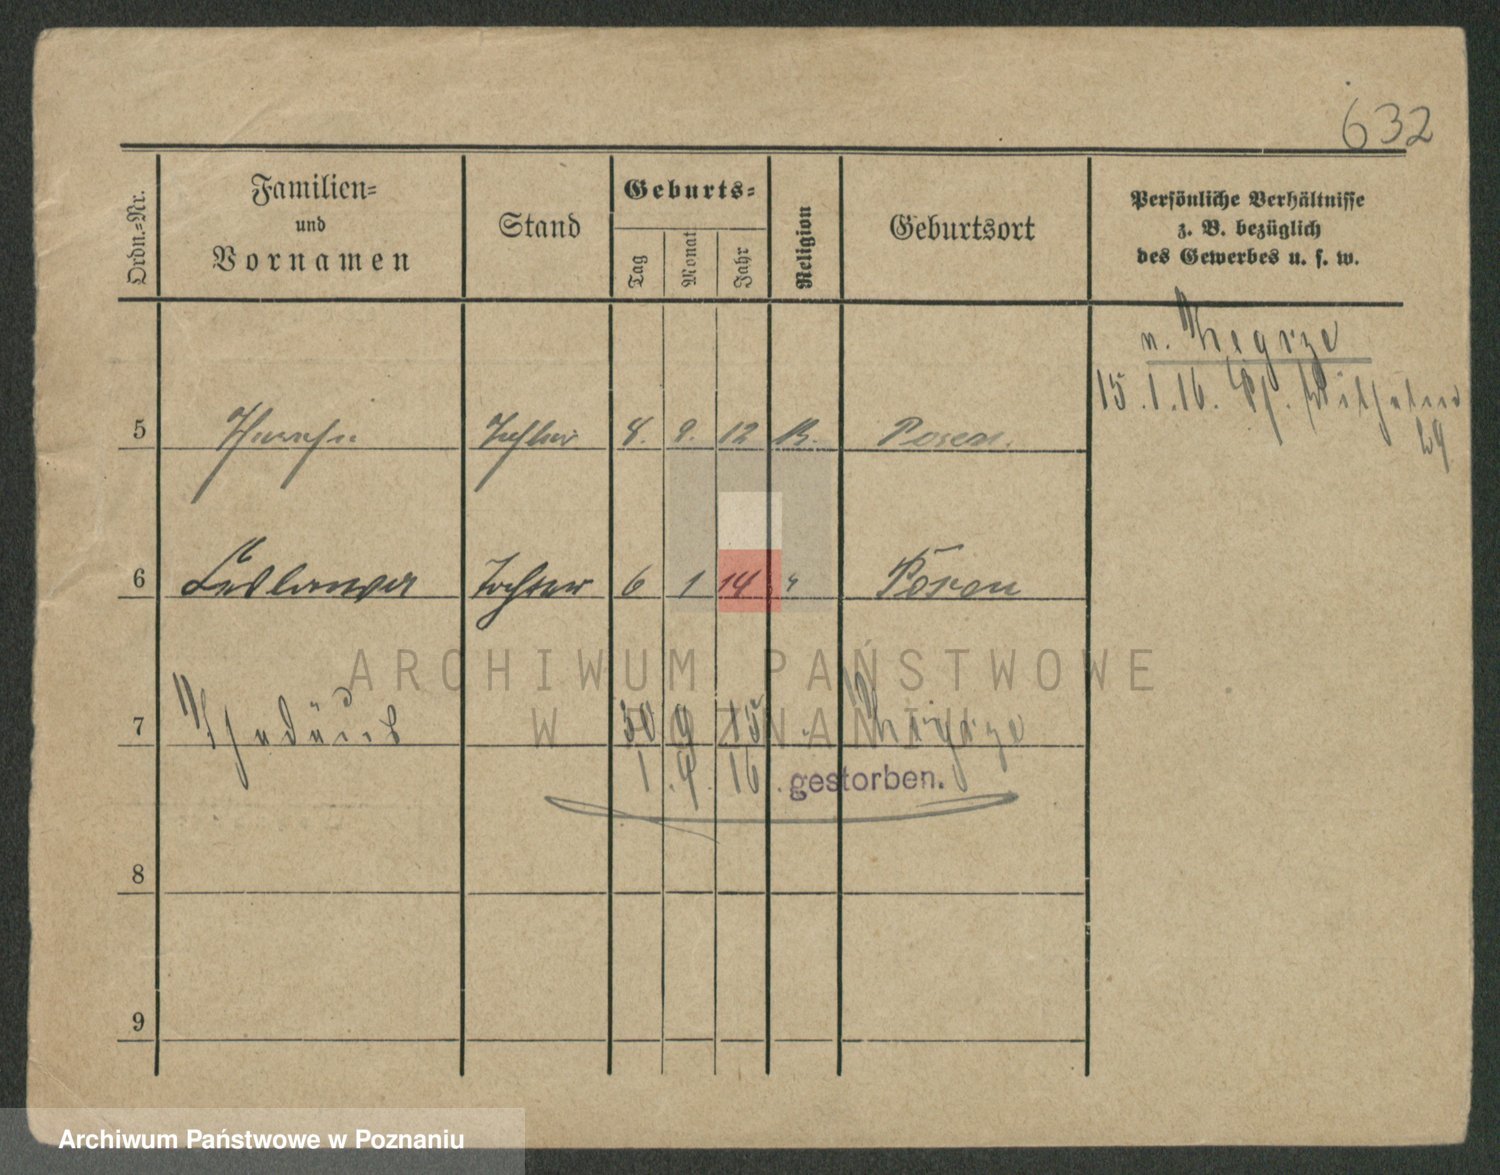 632
Ordn.-Nr.
Familien-
und
Vornamen
Stand
Geburts-
Tag
Monat
Jahr
Religion
Geburtsort
Persönliche Verhältnisse
z. B. bezüglich
des Gewerbes u. s. w.
n. Zegrze
15.1.16.
29
5 Tochter 8. 9. 12 Posen.
6 Tochter 6 1 14 " Posen
7 30 9 15 Zegrze
1.4.16. gestorben.
8
9
ARCHIWUM PAŃSTWOWE
W POZNANIU
Archiwum Państwowe w Poznaniu